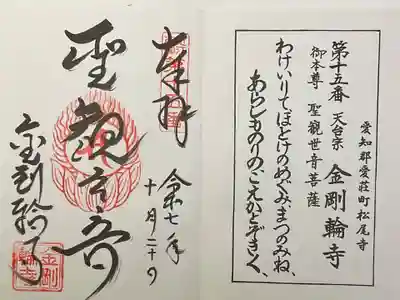 愛知郡愛荘町松尾寺
第十五番 天台宗 金剛輪寺
御本尊 聖観世音菩薩
わけいりてほとけのめぐみ、まつのみね、
あらしものりのこえかとぞきく、
奉拝
令和七年
十月二十日
聖観世音
金剛輪寺
金剛
輪寺